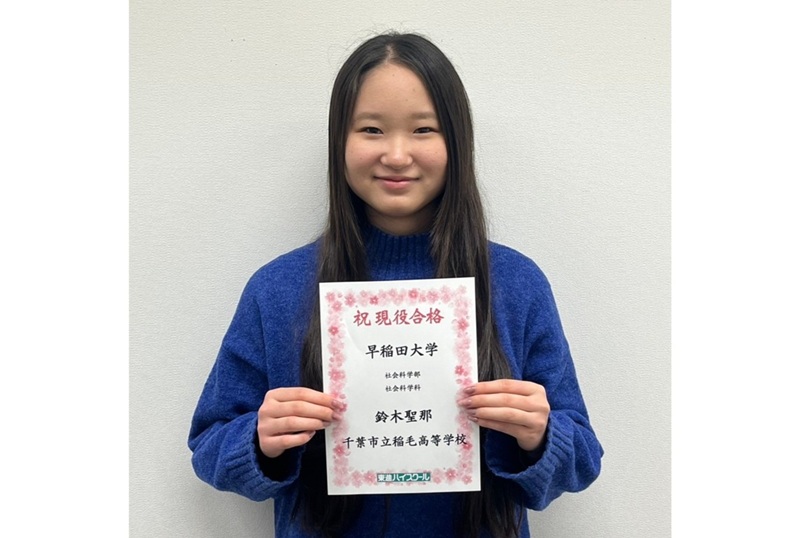 祝 現役合格
早稲田大学
社会科学部
社会科学科
鈴木聖那
千葉市立稲毛高等学校
東進ハイスクール